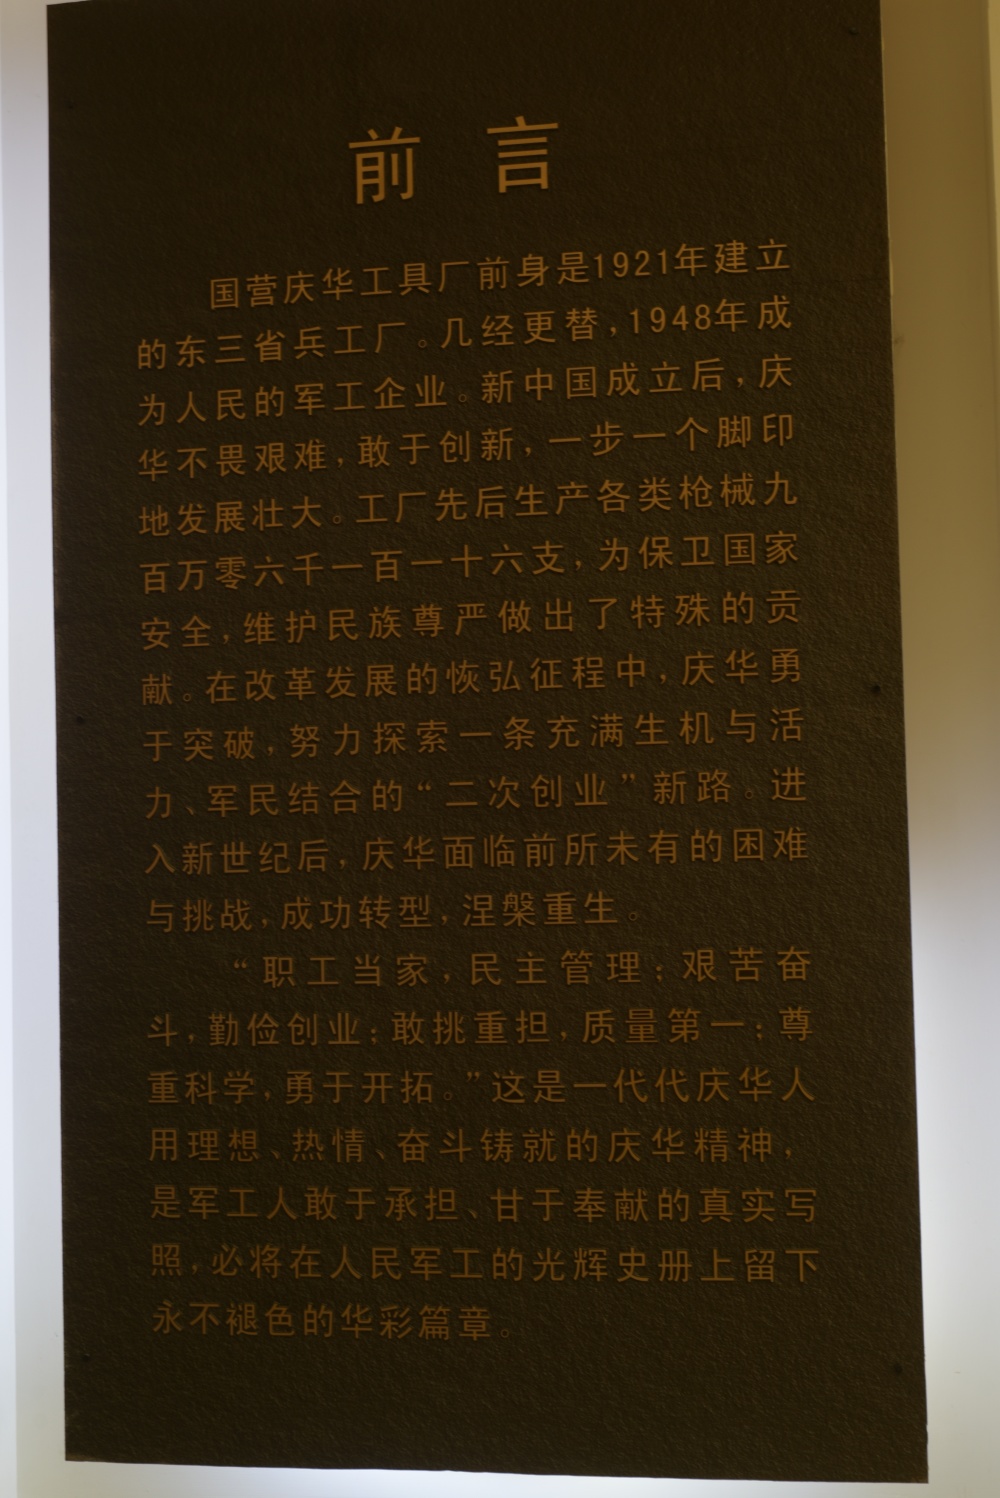 前言
国营庆华工具厂前身是1921年建立
的东三省兵工厂。几经更替，1948年成
为人民的军工企业。新中国成立后，庆
华不畏艰难，敢于创新，一步一个脚印
地发展壮大。工厂先后生产各类枪械九
百万零六千一百一十六支，为保卫国家
安全，维护民族尊严做出了特殊的贡
献。在改革发展的恢弘征程中，庆华勇
于突破，努力探索一条充满生机与活
力、军民结合的“二次创业”新路。进
入新世纪后，庆华面临前所未有的困难
与挑战，成功转型，涅槃重生。
“职工当家，民主管理；艰苦奋
斗，勤俭创业；敢挑重担，质量第一；尊
重科学，勇于开拓。”这是一代代庆华人
用理想、热情、奋斗铸就的庆华精神，
是军工人敢于承担、甘于奉献的真实写
照，必将在人民军工的光辉史册上留下
永不褪色的华彩篇章。